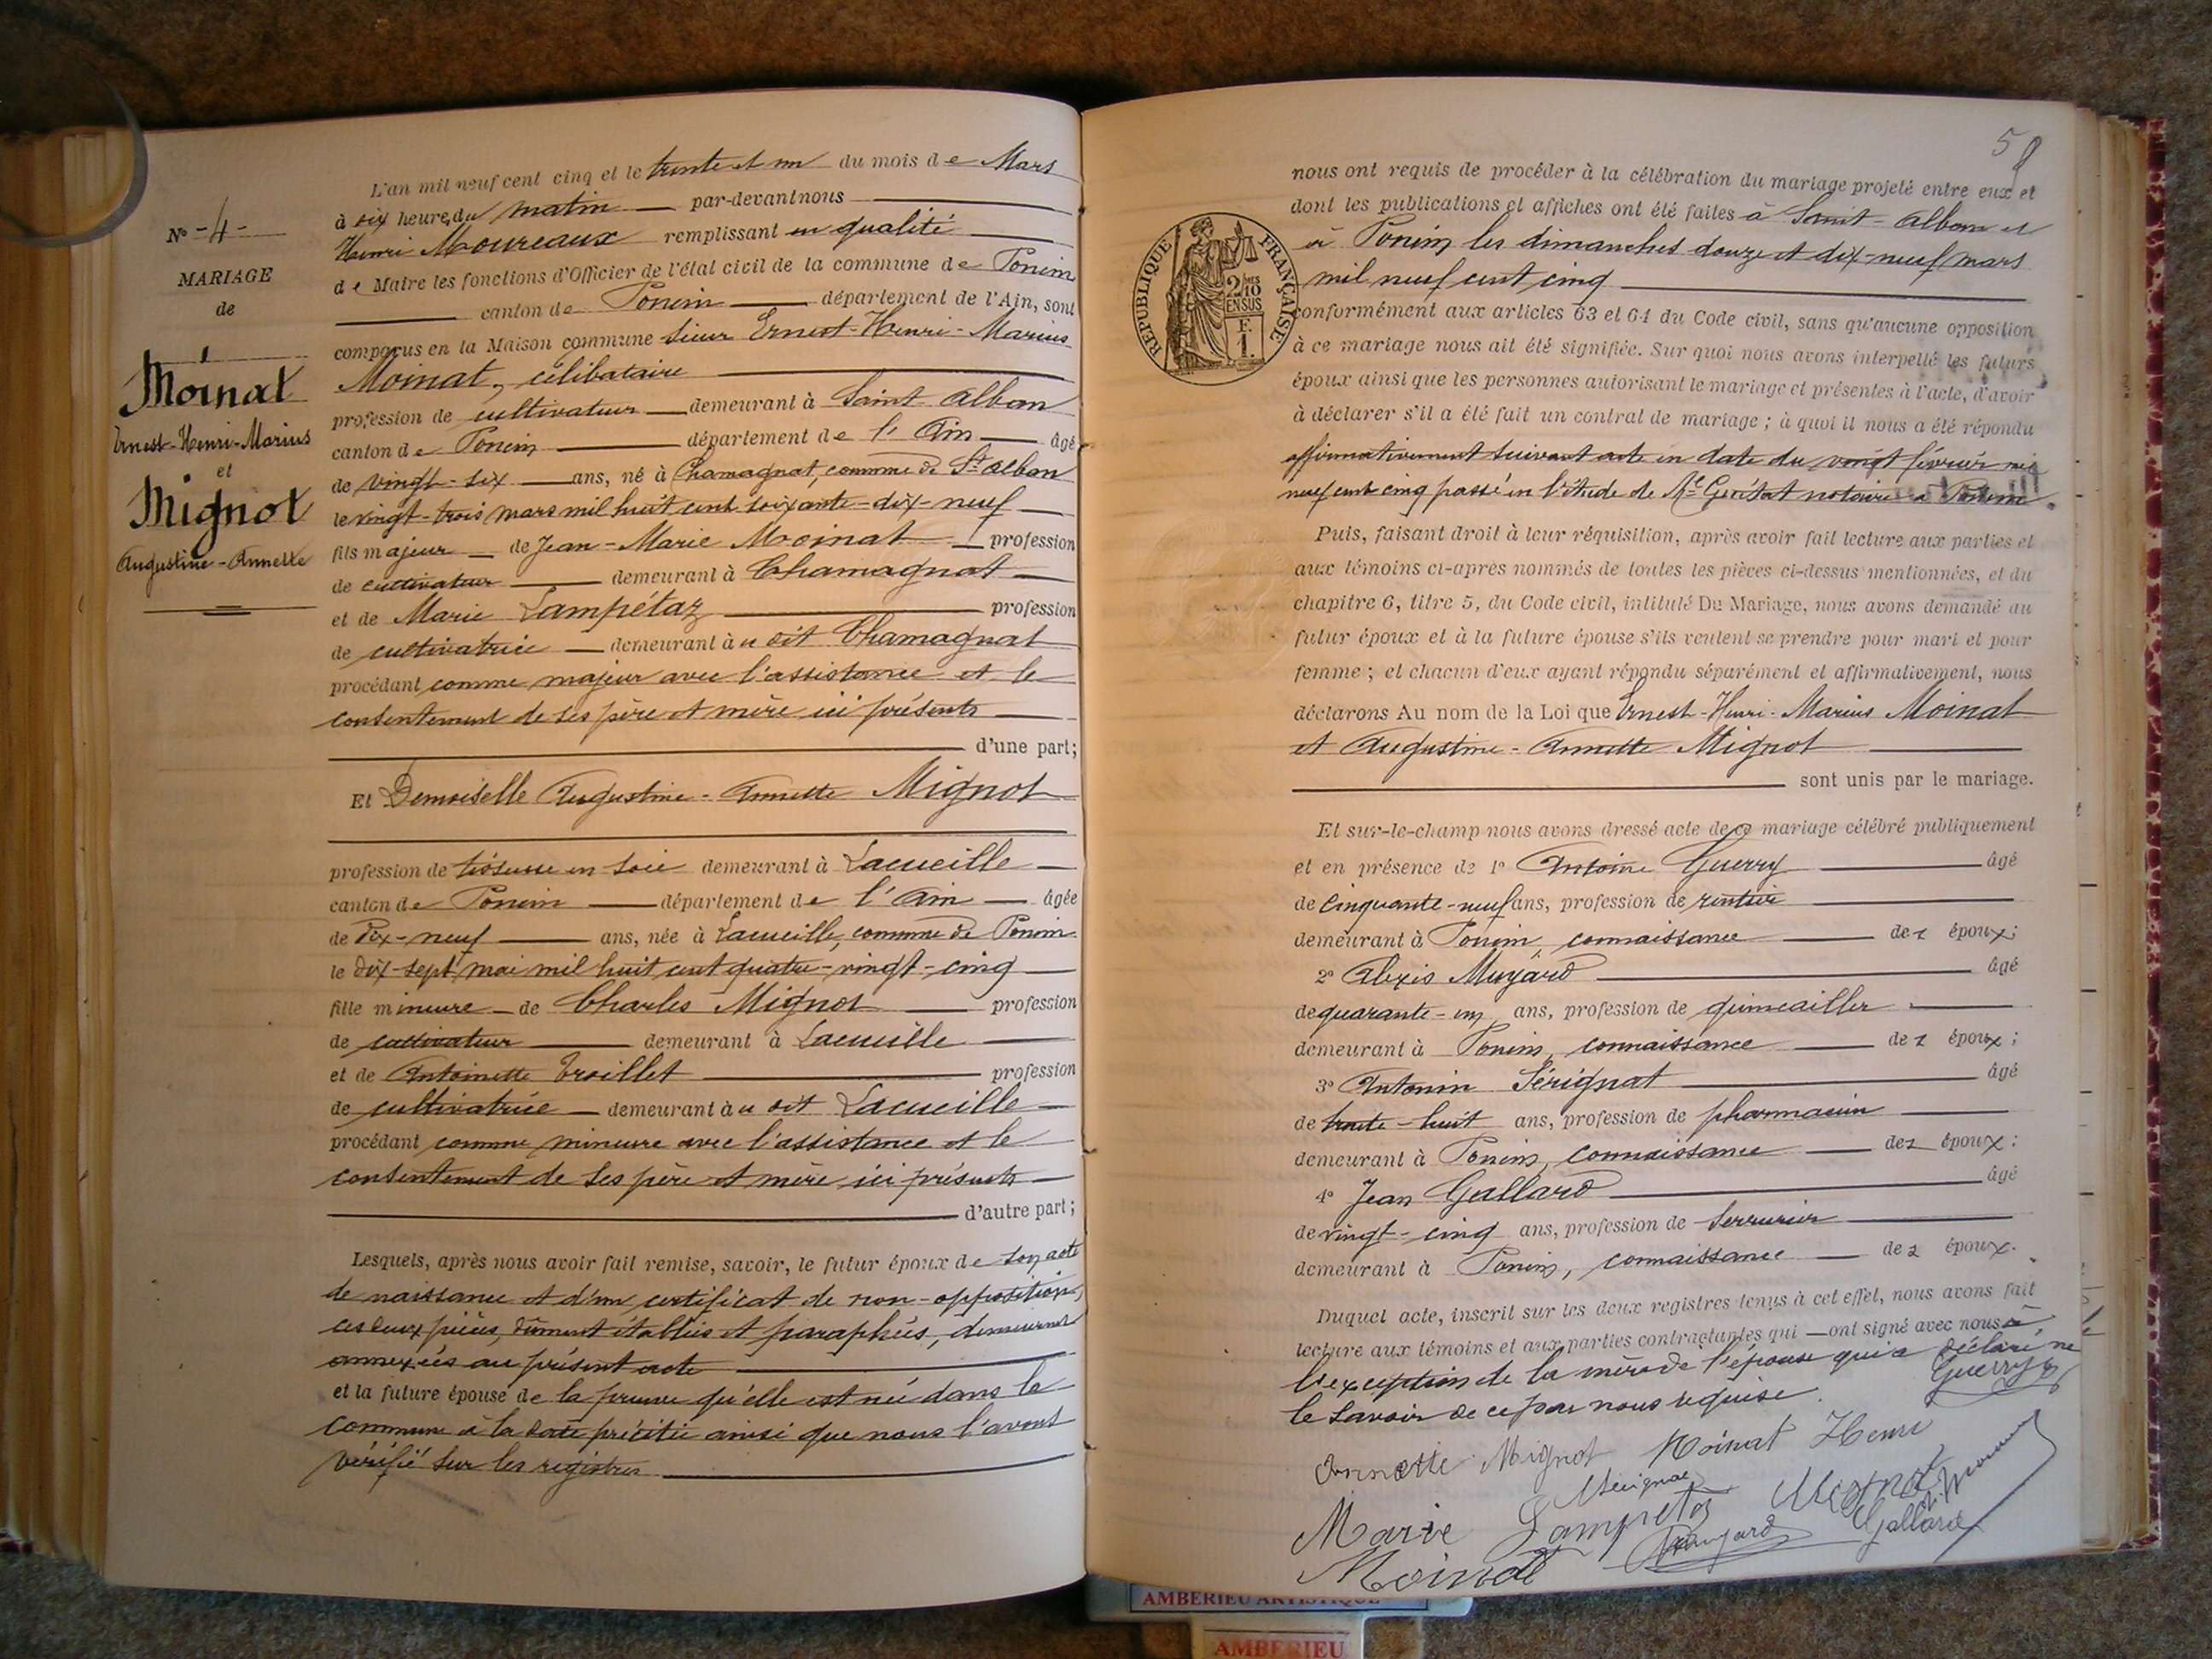 N° -4-
MARIAGE
de
Moinat
Ernest-Henri-Marius
et
Mignot
Augustine-Annette
L'an mil neuf cent cinq et le trente et un du mois de Mars
à six heures du matin par-devant nous
Henri Moureaux remplissant en qualité
de Maire les fonctions d'Officier de l'état civil de la commune de Poncin
canton de Poncin département de l'Ain, sont
comparus en la Maison commune sieur Ernest-Henri-Marius
Moinat, célibataire
profession de cultivateur demeurant à Saint Alban
canton de Poncin département de l'Ain âgé
de vingt-six ans, né à Chamagnat, commune de St Alban
le vingt-trois mars mil huit cent soixante-dix-neuf
fils majeur de Jean-Marie Moinat profession
de cultivateur demeurant à Chamagnat
et de Marie Lampétaz profession
de cultivatrice demeurant à u dit Chamagnat
procédant comme majeur avec l'assistance et le
consentement de ses père et mère ici présents
d'une part;
Et Demoiselle Augustine-Annette Mignot
profession de tisseuse en soie demeurant à Lacueille
canton de Poncin département de l'Ain âgée
de Dix-neuf ans, née à Lacueille, commune de Poncin
le dix-sept mai mil huit cent quatre-vingt-cinq
fille mineure de Charles Mignot profession
de cultivateur demeurant à Lacueille
et de Antoinette Troillet profession
de cultivatrice demeurant à u dit Lacueille
procédant comme mineure avec l'assistance et le
consentement de ses père et mère ici présents
d'autre part;
Lesquels, après nous avoir fait remise, savoir, le futur époux de son acte
de naissance et d'un certificat de non-opposition,
ces deux pièces, dûment établies et paraphées, demeurent
annexées au présent acte
et la future épouse de la preuve qu'elle est née dans la
commune à la date précitée ainsi que nous l'avons
vérifié sur les registres
58
nous ont requis de procéder à la célébration du mariage projeté entre eux et
dont les publications et affiches ont été faites à Saint-Alban et
à Poncin les dimanches douze et dix-neuf mars
mil neuf cent cinq
RÉPUBLIQUE FRANÇAISE
2/10
EN SUS
F.
1.
conformément aux articles 63 et 64 du Code civil, sans qu'aucune opposition
à ce mariage nous ait été signifiée. Sur quoi nous avons interpellé les futurs
époux ainsi que les personnes autorisant le mariage et présentes à l'acte, d'avoir
à déclarer s'il a été fait un contrat de mariage ; à quoi il nous a été répondu
affirmativement suivant acte en date du vingt février mil
neuf cent cinq passé en l'étude de Me notaire à Poncin.
Puis, faisant droit à leur réquisition, après avoir fait lecture aux parties et
aux témoins ci-après nommés de toutes les pièces ci-dessus mentionnées, et du
chapitre 6, titre 5, du Code civil, intitulé Du Mariage, nous avons demandé au
futur époux et à la future épouse s'ils veulent se prendre pour mari et pour
femme ; et chacun d'eux ayant répondu séparément et affirmativement, nous
déclarons Au nom de la Loi que Ernest-Henri-Marius Moinat
et Augustine-Annette Mignot
sont unis par le mariage.
Et sur-le-champ nous avons dressé acte de ce mariage célébré publiquement
et en présence de 1° Antoine Guerry âgé
de cinquante-neuf ans, profession de rentier
demeurant à Poncin, connaissance des époux;
2° Alexis Muyard âgé
de quarante-un ans, profession de quincailler
demeurant à Poncin, connaissance des époux;
3° Antonin Sérignat âgé
de trente-huit ans, profession de pharmacien
demeurant à Poncin, connaissance des époux;
4° Jean Gallard âgé
de vingt-cinq ans, profession de serrurier
demeurant à Poncin, connaissance des époux.
Duquel acte, inscrit sur les deux registres tenus à cet effet, nous avons fait
lecture aux témoins et aux parties contractantes qui ont signé avec nous à
l'exception de la mère de l'épouse qui a déclaré ne
le savoir de ce par nous requise.
Guerry
Annette Mignot Moinat Henri
Marie Lampetaz Mignot
Moinat Muyard Gallard
AMBERIEU ARTISTIQUE
AMBERIEU